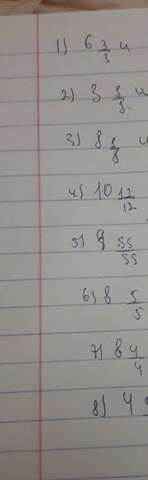 1) 6 3/3 и
2) 3 8/8. и
3) 8 8/8 и
4) 10 12/12
5) 9 55/55
6) 8 5/5
7) 8 4/4
8) 4